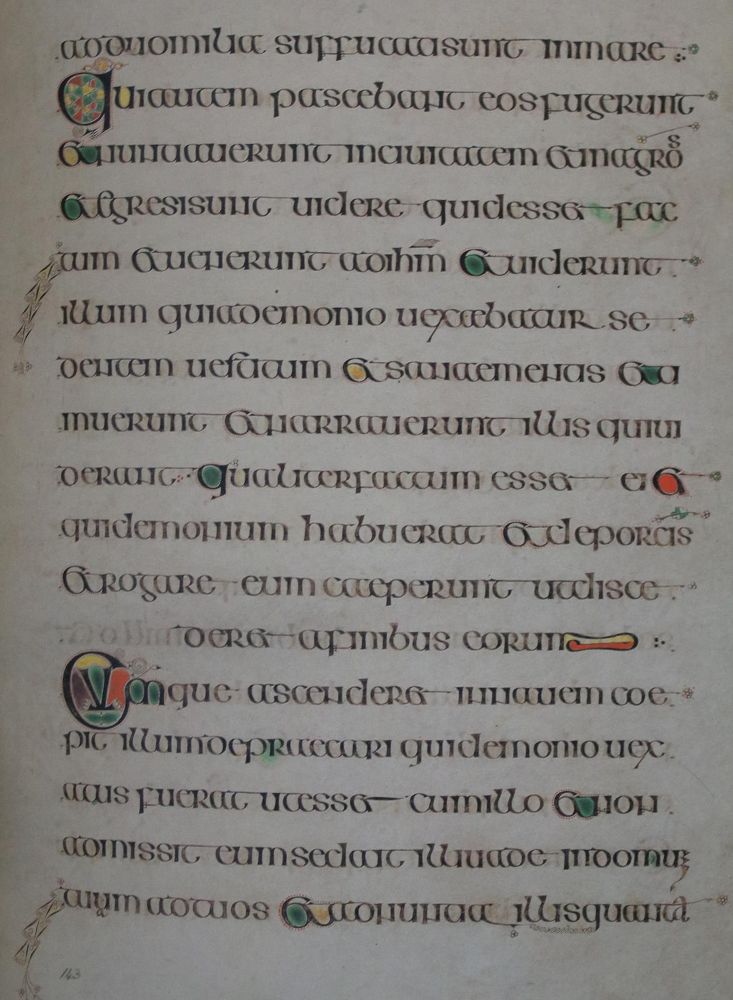 ad duo milia suffucati sunt in mare
Qui autem pascebant eos fugerunt
et nuntiauerunt in ciuitatem et in agros
et egresi sunt uidere quid esset fac
tum et uenerunt ad ihm et uiderunt
illum qui a demonio uexabatur se
dentem uestitum et sanae mentis et ti
muerunt et narrauerunt illis qui ui
derant qualiter factum esset ei et
qui demonium habuerat et de porcis
et rogare eum caeperunt ut disce
deret a finibus eorum
Cumque ascenderet in nauem coe
pit illum depraecari qui demonio uex
atus fuerat ut esset cum illo et non
admissit eum sed ait illi uade in domum
tuam ad tuos et adnuntia illis quanta
143